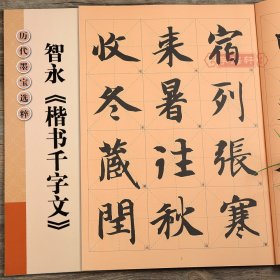 历代墨宝选粹
智永《楷书千字文》
宿列張寒
来暑往秋
收冬蔵閏